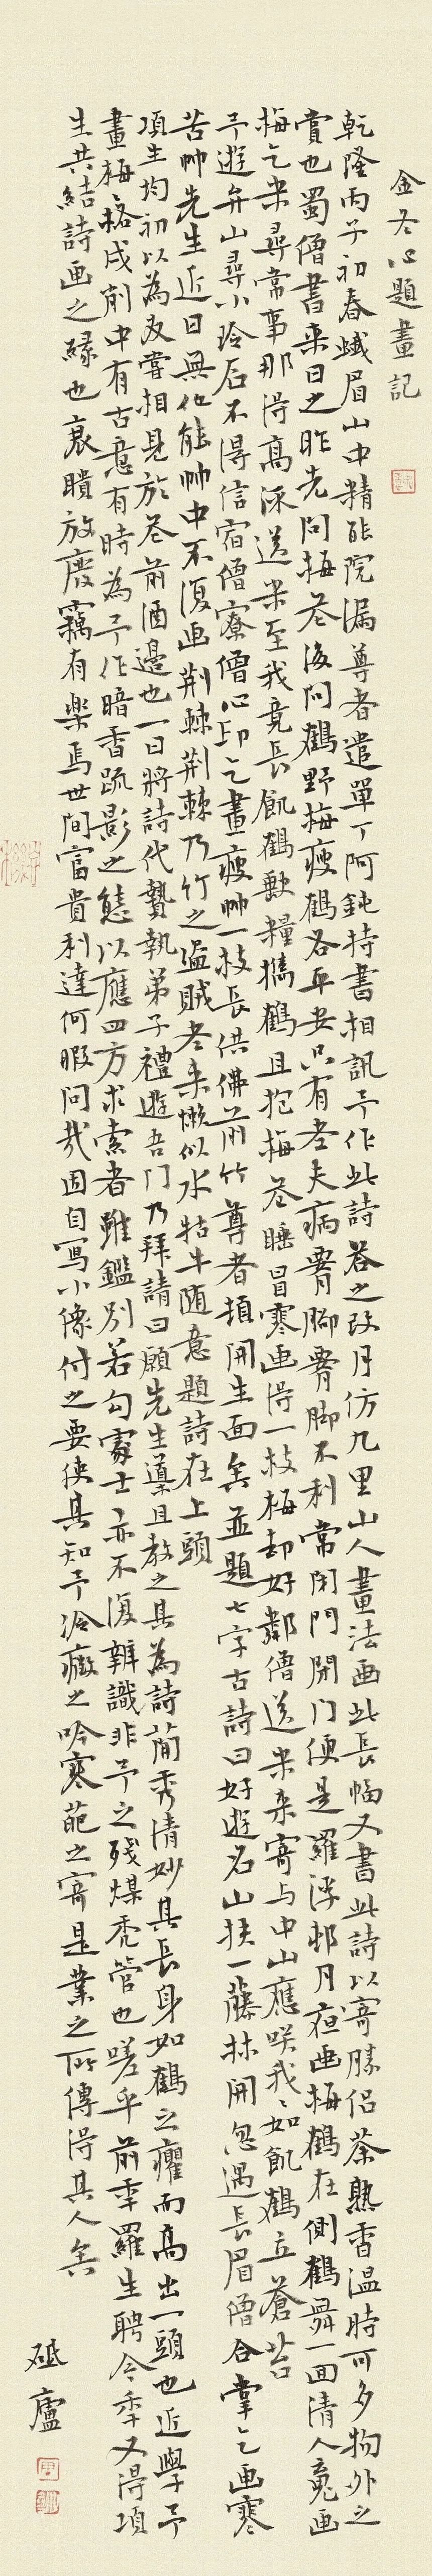 金冬心題畫記
乾隆丙子初春蛾眉山中精能院漏尊者遣單丁阿鈍持書相訊予作此詩答之改月仿九里山人畫法画此長幅又書此詩以寄勝侣茶熟香温時可多物外之
賞也蜀僧書来日之昨先问梅花後问鶴野梅瘦鶴各平安只有老夫病膂脚膂脚不利常闭門閉门便是羅浮邨月夜画梅鶴在側鶴舞一面清人魂画
梅乞米尋常事那得高流送米至我竟長飢鶴缺糧攜鶴且抱梅花睡冒寒画得一枝梅却好鄰僧送米来寄与中山應咲我〻如飢鶴立蒼苔
予遊弁山尋小玲石不得信宿僧寮僧心印乞畫瘦竹一枝長供佛前竹尊者頓開生面矣並題七字古詩曰好遊名山扶一藤林開忽遇長眉僧合掌乞画寒
苦竹先生近日無他能竹中不復画荆棘荆棘乃竹之盗賊老来懶似水牯牛随意題詩在上頭
項生均初以為友嘗相見於花前酒邊也一日將詩代贄執弟子禮遊吾门乃拜請曰願先生導且教之其為詩簡秀清妙其長身如鶴之癯而高出一頭也近學予
畫梅〻格戌削中有古意有時為予作暗香疏影之態以應四方求索者雖鑑別若勾處士亦不復辨識非予之残煤秃管也嗟乎前季羅生聘今季又得項
生共結詩画之緣也衰聵放廢竊有樂焉世间富貴利達何暇问哉因自寫小像付之要使其知予冷癥之吟寒葩之寄是業之所傳得其人矣
砥廬